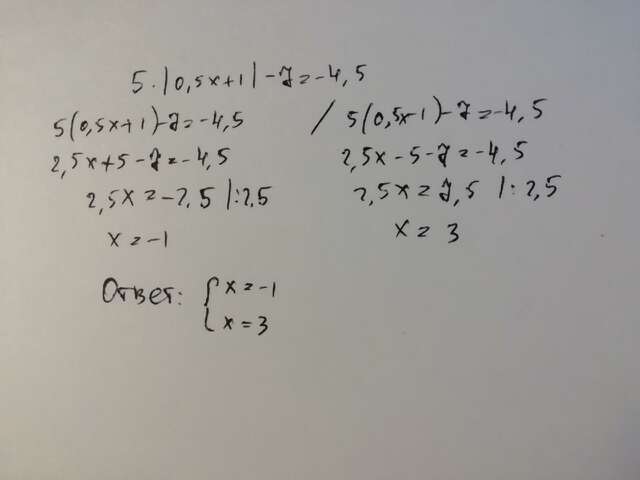 5·|0,5x+1|-7=-4,5
5(0,5x+1)-7=-4,5 / 5(0,5x-1)-7=-4,5
2,5x+5-7=-4,5 2,5x-5-7=-4,5
2,5x=-2,5 |:2,5 2,5x=7,5 |:2,5
x=-1 x=3
Ответ: { x=-1
x=3